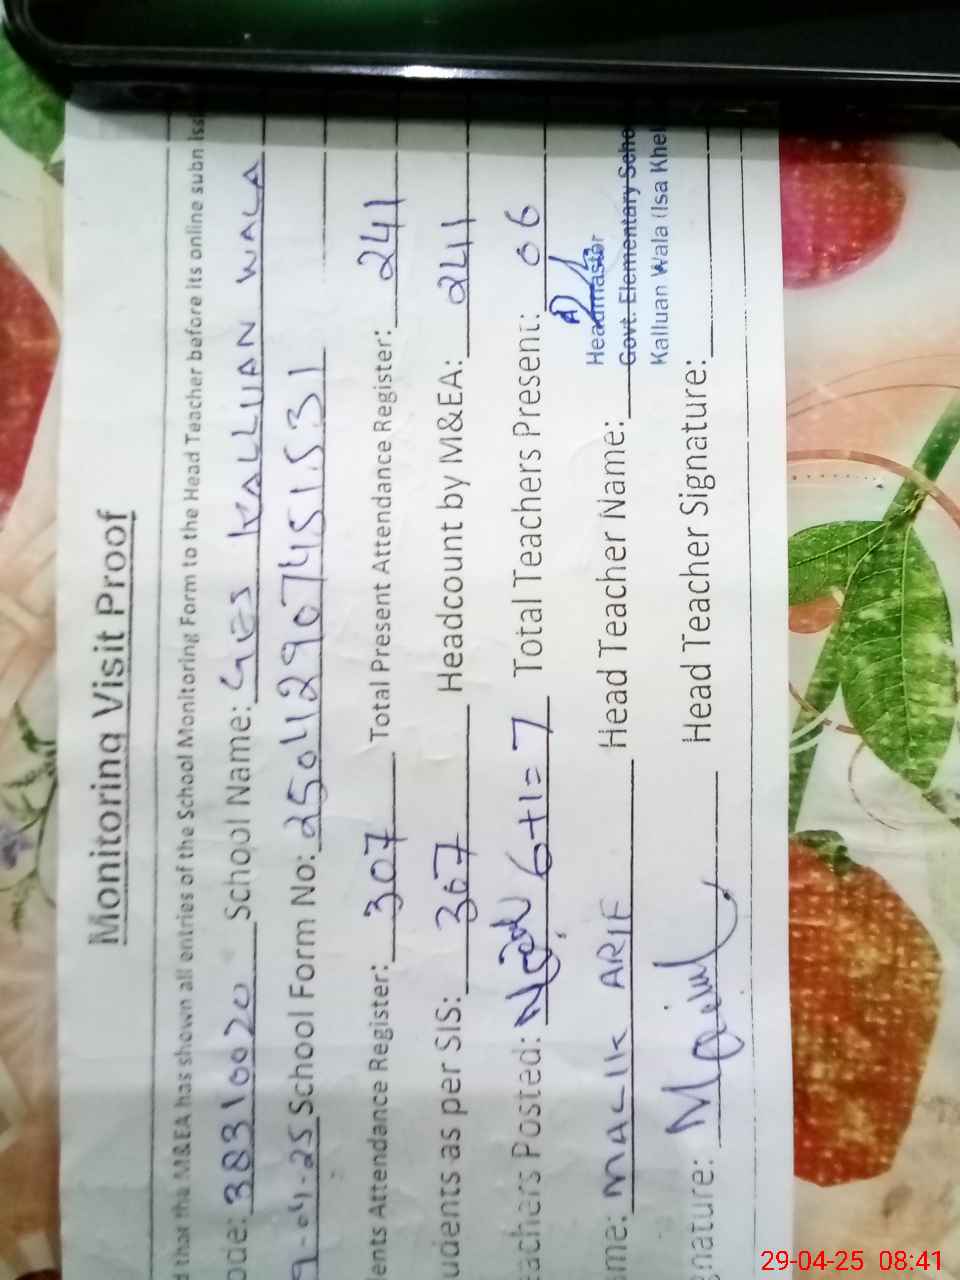 Monitoring Visit Proof
d that tha M&EA has shown all entries of the School Monitoring Form to the Head Teacher before its online submiss
ode: 38310020 School Name: GES KALLUAN WALA
9-04-25 School Form No: 250412907451531
lents Attendance Register: 307 Total Present Attendance Register: 241
udents as per SIS: 307 Headcount by M&EA: 241
eachers Posted: 6+1=7 Total Teachers Present: 06
me: MALIK ARIF Head Teacher Name:
Headmaster
Govt. Elementary Scho
Kalluan Wala (Isa Khel
nature: Head Teacher Signature:
29-04-25 08:41